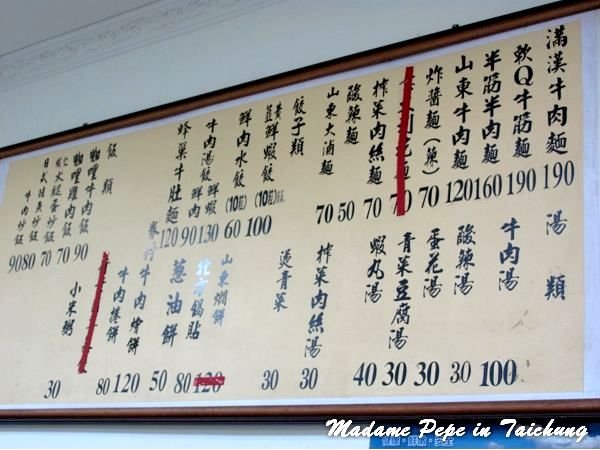 滿漢牛肉麵 190
軟Q牛筋麵 190
半筋半肉麵 160
山東牛肉麵 120
炸醬麵(辣) 70
麵 70
榨菜肉絲麵 70
酸辣麵 50
山東大滷麵 70
餃子類
黃韭鮮蝦餃(10粒) 100
鮮肉水餃(10粒) 60
牛肉湯餃 鮮蝦 130
鮮肉 90
蜂巢牛肚麵 120
飯類
咖哩牛肉飯 90
咖哩雞肉飯 70
火腿蛋炒飯 70
日式鮭魚炒飯 80
牛肉炒飯 90
湯類
牛肉湯 100
酸辣湯 30
蛋花湯 30
青菜豆腐湯 30
蝦丸湯 40
榨菜肉絲湯 30
燙青菜 30
山東燜餅 120
鍋貼 80
蔥油餅 50
牛肉燴餅 120
牛肉捲餅 80
小米粥 30
Madame Pepe in Taichung